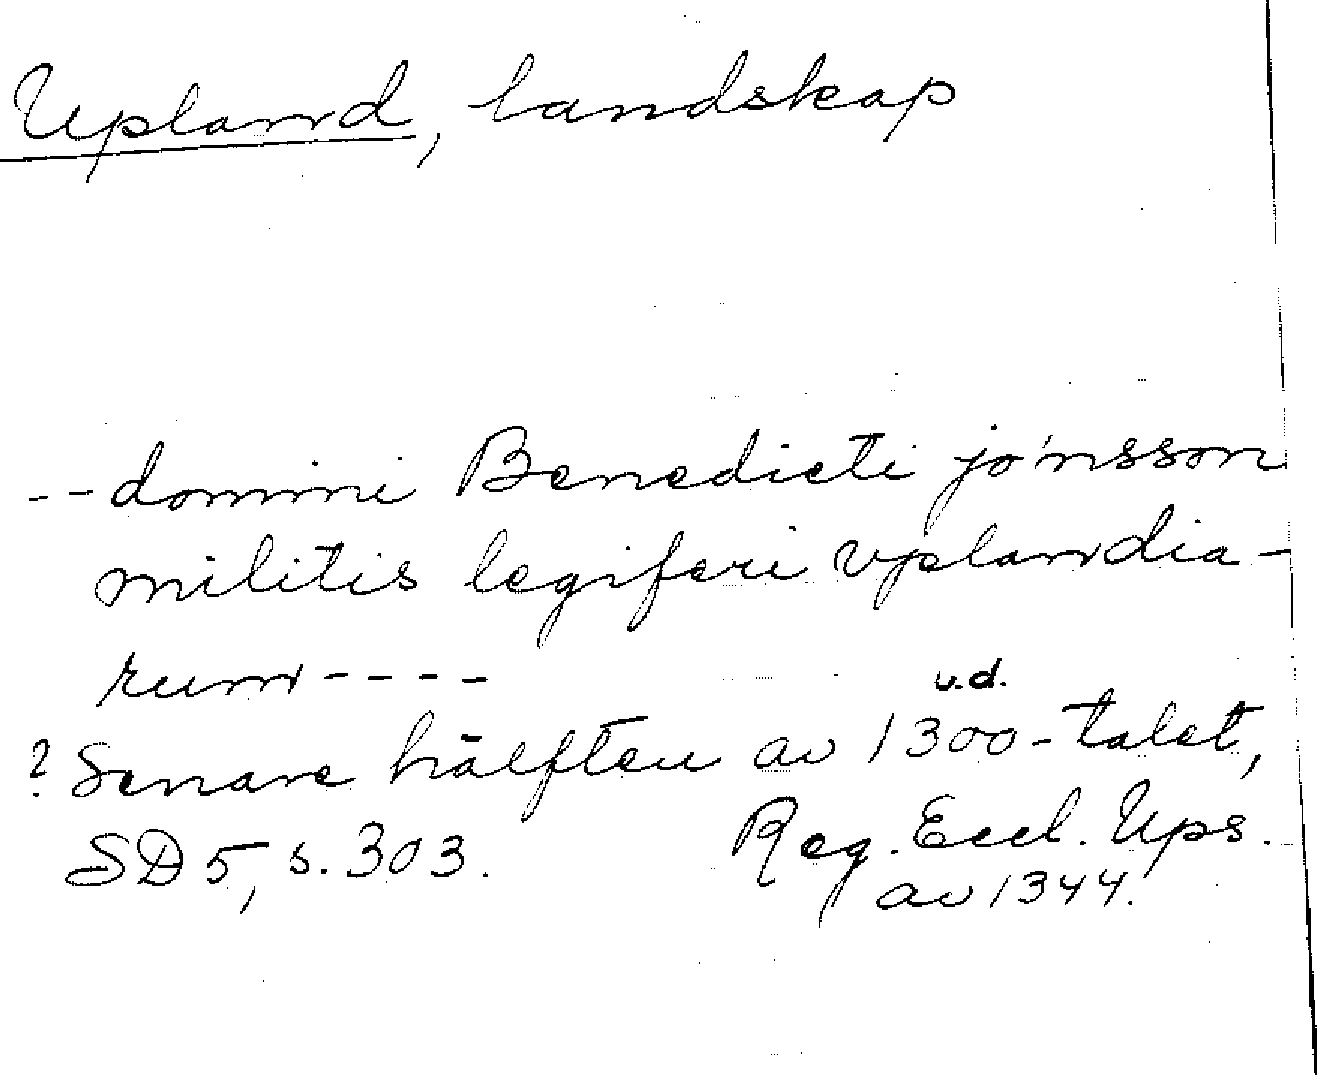 Upland, landskap
--domini Benedicti jónsson
militis legiferi vplandia-
rum----
u.d.
? Senare hälften av 1300-talet,
SD 5, s. 303. Reg. Eccl. Ups.
av 1344.